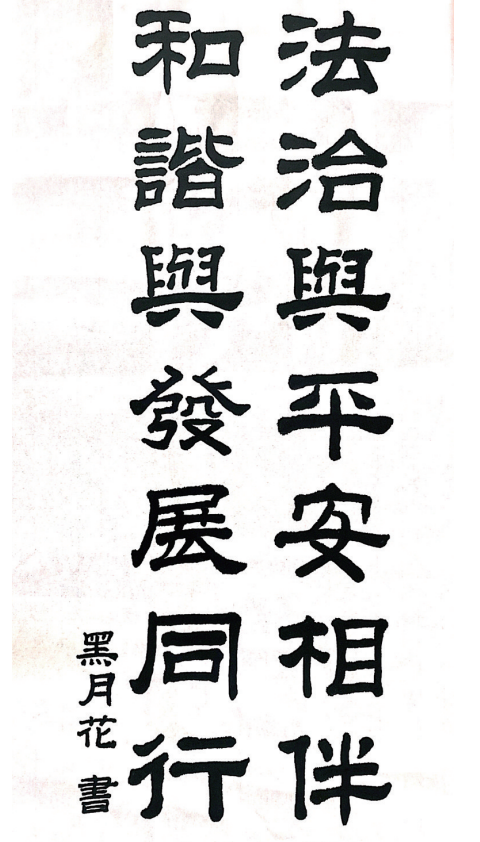 法治與平安相伴
和諧與發展同行
黑月花 書